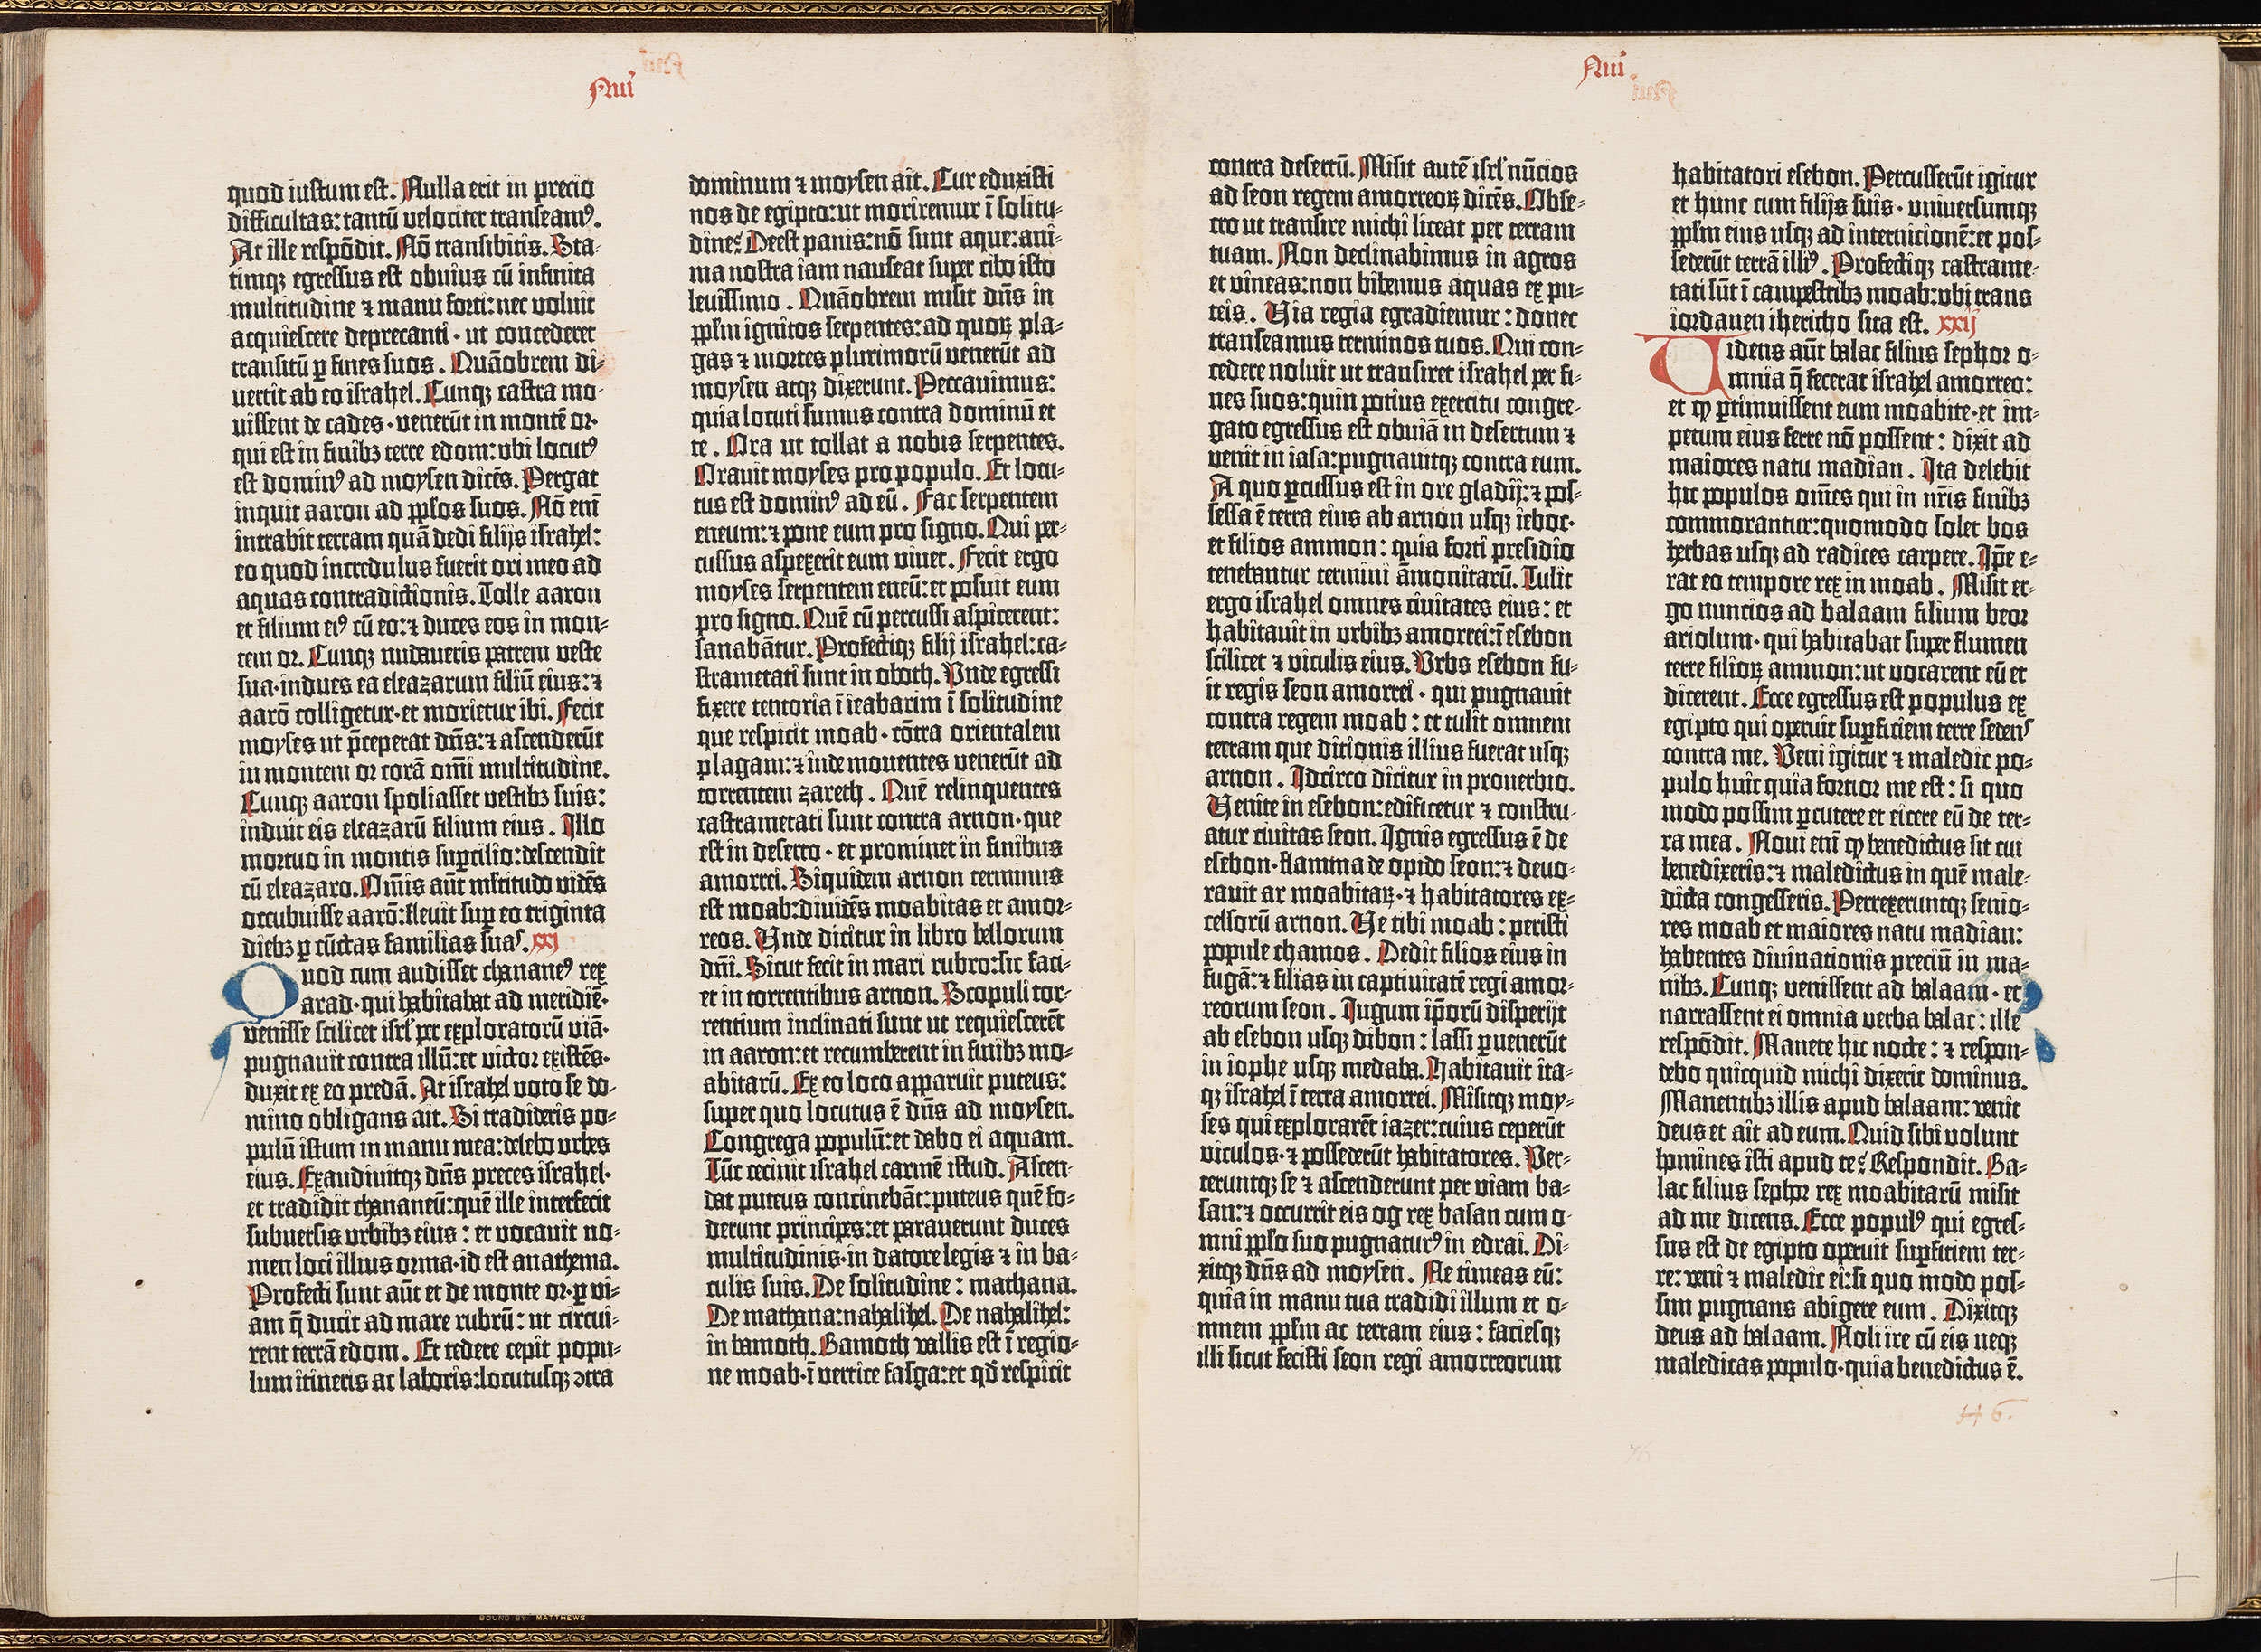 Nūi
quod iustum est. Nulla erit in precio
difficultas: tantū velociter transeamꝰ.
At ille respōdit. Nō transibitis. Sta-
timqʒ egressus est obuius cū infinita
multitudine ⁊ manu forti: nec voluit
acquiescere deprecanti · ut concederet
transitū ꝑ fines suos. Quāobrem di-
uertit ab eo israhel. Cunqʒ castra mo-
uissent de cades · venerūt in montē or·
qui est in finibʒ terre edom: ubi locutꝰ
est dominꝰ ad moysen dicēs. Pergat
inquit aaron ad pplos suos. Nō eni
intrabit terram quā dedi filijs israhel:
eo quod incredulus fuerit ori meo ad
aquas contradictionis. Tolle aaron
et filium eiꝰ cū eo: ⁊ duces eos in mon-
tem or. Cunqʒ nudaueris patrem veste
sua· indues ea eleazarum filiū eius: ⁊
aarō colligetur· et morietur ibi. Fecit
moyses ut p̄ceperat dn̄s: ⁊ ascenderūt
in montem or corā om̄i multitudine.
Cunqʒ aaron spoliasset vestibʒ suis:
induit eis eleazarū filium eius. Illo
mortuo in montis suꝑcilio: descendit
cū eleazaro. Om̄is aūt ml̄titudo vidēs
occubuisse aarō: fleuit suꝑ eo triginta
diebʒ ꝑ cūctas familias suas. xxj
Quod cum audisset chananeꝰ rex
arad· qui habitabat ad meridiē·
venisse scilicet isrl' per exploratorū viā·
pugnauit contra illū: et victor existēs·
duxit ex eo predā. At israhel voto se do-
mino obligans ait. Si tradideris po-
pulū istum in manu mea: delebo vrbes
eius. Exaudiuitqʒ dn̄s preces israhel·
et tradidit chananeū: quē ille interfecit
subuersis vrbibʒ eius : et vocauit no-
men loci illius orma· id est anathema.
Profecti sunt aūt et de monte or· ꝑ vi-
am q̄ ducit ad mare rubrū : ut circui-
rent terrā edom. Et tedere cepit popu-
lum itineris ac laboris: locutusqʒ ↄtra
dominum ⁊ moysen ait. Cur eduxisti
nos de egipto: ut moriremur ī solitu-
dine? Deest panis: nō sunt aque: ani-
ma nostra iam nauseat super cibo isto
leuissimo. Quāobrem misit dn̄s in
pplm ignitos serpentes: ad quoꝝ pla-
gas ⁊ mortes plurimorū venerūt ad
moysen atqʒ dixerunt. Peccauimus:
quia locuti sumus contra dominū et
te. Ora ut tollat a nobis serpentes.
Orauit moyses pro populo. Et locu-
tus est dominꝰ ad eū. Fac serpentem
eneum: ⁊ pone eum pro signo. Qui per-
cussus aspexerit eum viuet. Fecit ergo
moyses serpentem eneū: et posuit eum
pro signo. Quē cū percussi aspicerent:
sanabātur. Profectiqʒ filij israhel: ca-
strametati sunt in oboth. Vnde egressi
fixere tentoria ī ieabarim ī solitudine
que respicit moab · cōtra orientalem
plagam: ⁊ inde mouentes venerūt ad
torrentem zareth. Quē relinquentes
castrametati sunt contra arnon· que
est in deserto · et prominet in finibus
amorrei. Siquidem arnon terminus
est moab: diuidēs moabitas et amor-
reos. Vnde dicitur in libro bellorum
dn̄i. Sicut fecit in mari rubro: sic faci-
et in torrentibus arnon. Scopuli tor-
rentium inclinati sunt ut requiescerēt
in aaron: et recumberent in finibʒ mo-
abitarū. Ex eo loco apparuit puteus:
super quo locutus ē dn̄s ad moysen.
Congrega populū: et dabo ei aquam.
Tūc cecinit israhel carmē istud. Ascen-
dat puteus concinebāt: puteus quē fo-
derunt principes: et parauerunt duces
multitudinis· in datore legis ⁊ in ba-
culis suis. De solitudine : mathana.
De mathana: nahalihel. De nahalihel:
in bamoth. Bamoth vallis est ī regio-
ne moab· ī vertice fasga: et qd̄ respicit
Nūi
contra desertū. Misit autē isrl' nūcios
ad seon regem amorreoꝝ dicēs. Obse-
cro ut transire michi liceat per terram
tuam. Non declinabimus in agros
et vineas: non bibemus aquas ex pu-
teis. Via regia egradiemur : donec
transeamus terminos tuos. Qui con-
cedere noluit ut transiret israhel per fi-
nes suos: quin potius exercitu congre-
gato egressus est obuiā in desertum ⁊
venit in iasa: pugnauitqʒ contra eum.
A quo ꝑcussus est in ore gladij: ⁊ pos-
sessa ē terra eius ab arnon usqʒ ieboc·
et filios ammon : quia forti presidio
tenebantur termini āmonitarū. Tulit
ergo israhel omnes ciuitates eius : et
habitauit in vrbibʒ amorrei: ī esebon
scilicet ⁊ viculis eius. Vrbs esebon fu-
it regis seon amorrei · qui pugnauit
contra regem moab : et tulit omnem
terram que ditionis illius fuerat usqʒ
arnon. Idcirco dicitur in prouerbio.
Venite in esebon: edificetur ⁊ constru-
atur ciuitas seon. Ignis egressus ē de
esebon· flamma de opido seon: ⁊ deuo-
rauit ar moabitaꝝ· ⁊ habitatores ex-
celsorū arnon. Ve tibi moab : peristi
popule chamos. Dedit filios eius in
fugā: ⁊ filias in captiuitatē regi amor-
reorum seon. Iugum ip̄orū disperijt
ab esebon usqʒ dibon : lassi ꝑuenerūt
in iophe usqʒ medaba. Habitauit ita-
qʒ israhel ī terra amorrei. Misitqʒ moy-
ses qui explorarēt iazer: cuius ceperūt
viculos· ⁊ possederūt habitatores. Ver-
teruntqʒ se ⁊ ascenderunt per viam ba-
san: ⁊ occurrit eis og rex basan cum o-
mni pplo suo pugnaturꝰ in edrai. Di-
xitqʒ dn̄s ad moysen. Ne timeas eū:
quia in manu tua tradidi illum et o-
mnem pplm ac terram eius : faciesqʒ
illi sicut fecisti seon regi amorreorum
habitatori esebon. Percusserūt igitur
et hunc cum filijs suis · vniuersumqʒ
pplm eius usqʒ ad internicionē: et pos-
sederūt terrā illiꝰ. Profectiqʒ castrame-
tati sūt ī campestribʒ moab: ubi trans
iordanen ihericho sita est. xxij
Videns aūt balac filius sephor o-
mnia q̄ fecerat israhel amorreo:
et ꝙ ꝑtimuissent eum moabite· et im-
petum eius ferre nō possent : dixit ad
maiores natu madian. Ita delebit
hic populos om̄es qui in nr̄is finibʒ
commorantur: quomodo solet bos
herbas usqʒ ad radices carpere. Ip̄e e-
rat eo tempore rex in moab. Misit er-
go nuncios ad balaam filium beor
ariolum· qui habitabat super flumen
terre filioꝝ ammon: ut vocarent eū et
dicerent. Ecce egressus est populus ex
egipto qui operuit suꝑficiem terre sedens
contra me. Veni igitur ⁊ maledic po-
pulo huic quia fortior me est : si quo
modo possim ꝑcutere et eicere eū de ter-
ra mea. Noui enī ꝙ benedictus sit cui
benedixeris: ⁊ maledictus in quē male-
dicta congesseris. Perrexeruntqʒ senio-
res moab et maiores natu madian:
habentes diuinationis preciū in ma-
nibʒ. Cunqʒ venissent ad balaam · et
narrassent ei omnia verba balac : ille
respōdit. Manete hic nocte : ⁊ respon-
debo quicquid michi dixerit dominus.
Manentibʒ illis apud balaam: venit
deus et ait ad eum. Quid sibi volunt
homines isti apud te? Respondit. Ba-
lac filius sephor rex moabitarū misit
ad me dicens. Ecce populꝰ qui egres-
sus est de egipto operuit suꝑficiem ter-
re: veni ⁊ maledic ei: si quo modo pos-
sim pugnans abigere eum. Dixitqʒ
deus ad balaam. Noli ire cū eis neqʒ
maledicas populo· quia benedictus ē.
H 6.
76
BOUND BY MATTHEWS